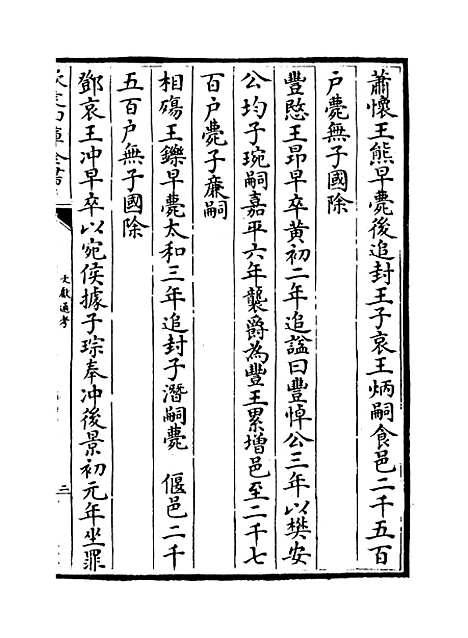 蕭懷王熊早薨後追封王子哀王炳嗣食邑二千五百
户薨無子國除
豐愍王昂早卒黄初二年追諡曰豐悼公三年以樊安
公均子琬嗣嘉平六年襲爵為豐王累增邑至二千七
百户薨子㢘嗣
相殤王鑠早薨太和三年追封子潛嗣薨　偃邑二千
五百户無子國除
鄧哀王冲早卒以宛侯據子琮奉冲後景初元年坐罪
文獻通考
三